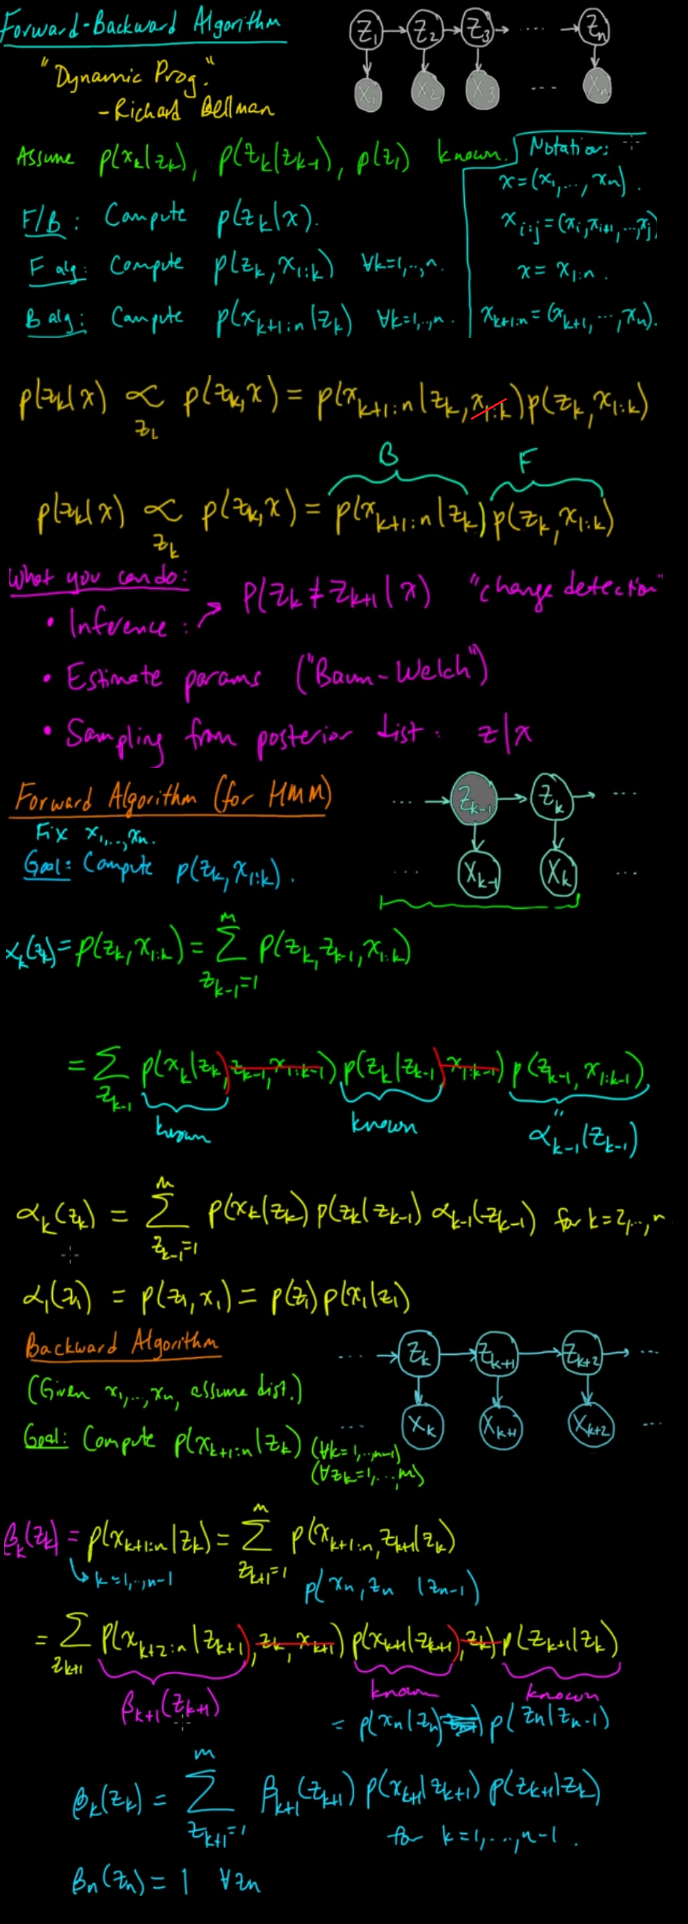 Forward-Backward Algorithm
"Dynamic Prog."
- Richard Bellman
z₁ z₂ z₃ .... zₙ
x₁ x₂ x₃ ... xₙ
Assume p(xₖ|zₖ), p(zₖ|zₖ₋₁), p(z₁) known.
Notation:
x = (x₁,..., xₙ).
x_{i:j} = (x_i, x_{i+1},..., x_j)
x = x_{1:n}.
x_{k+1:n} = (x_{k+1}, ..., xₙ).
F/B: Compute p(zₖ|x).
F alg: Compute p(zₖ, x_{1:k}) ∀k=1,..,n.
B alg: Compute p(x_{k+1:n}|zₖ) ∀k=1,..,n.
p(zₖ|x) ∝_{z₁} p(zₖ, x) = p(x_{k+1:n}|zₖ, x_{1:k}) p(zₖ, x_{1:k})
B F
p(zₖ|x) ∝_{zₖ} p(zₖ, x) = p(x_{k+1:n}|zₖ) p(zₖ, x_{1:k})
What you can do:
• Inference: → P(zₖ ≠ zₖ₊₁|x) "change detection"
• Estimate params ("Baum-Welch")
• Sampling from posterior dist. z|x
Forward Algorithm (for HMM)
Fix x₁,...,xₙ.
Goal: Compute p(zₖ, x_{1:k}).
... zₖ₋₁ zₖ ...
... xₖ₋₁ xₖ ...
αₖ(zₖ) = p(zₖ, x_{1:k}) = Σ_{zₖ₋₁=1}^{m} p(zₖ, zₖ₋₁, x_{1:k})
= Σ_{zₖ₋₁} p(xₖ|zₖ), zₖ₋₁, x_{1:k-1}) p(zₖ|zₖ₋₁) x_{1:k-1}) p(zₖ₋₁, x_{1:k-1})
known known " αₖ₋₁(zₖ₋₁)
αₖ(zₖ) = Σ_{zₖ₋₁=1}^{m} p(xₖ|zₖ) p(zₖ|zₖ₋₁) αₖ₋₁(zₖ₋₁) for k=2,..,n
α₁(z₁) = p(z₁, x₁) = p(z₁) p(x₁|z₁)
Backward Algorithm
(Given x₁,...,xₙ, assume dist.)
Goal: Compute p(x_{k+1:n}|zₖ) (∀k=1,..,n-1)
(∀zₖ=1,..,m)
... zₖ zₖ₊₁ zₖ₊₂ ...
... xₖ xₖ₊₁ xₖ₊₂ ...
βₖ(zₖ) = p(x_{k+1:n}|zₖ) = Σ_{zₖ₊₁=1}^{m} p(x_{k+1:n}, zₖ₊₁|zₖ)
↳ k=1,..,n-1
p(xₙ, zₙ |zₙ₋₁)
= Σ_{zₖ₊₁} p(x_{k+2:n}|zₖ₊₁), zₖ, xₖ₊₁) p(xₖ₊₁|zₖ₊₁), zₖ) p(zₖ₊₁|zₖ)
βₖ₊₁(zₖ₊₁) known known
= p(xₙ|zₙ) p(zₙ|zₙ₋₁)
βₖ(zₖ) = Σ_{zₖ₊₁=1}^{m} βₖ₊₁(zₖ₊₁) p(xₖ₊₁|zₖ₊₁) p(zₖ₊₁|zₖ)
for k=1,...,n-1.
βₙ(zₙ) = 1 ∀zₙ